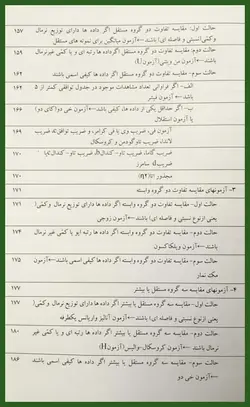 حالت اول: مقایسه تفاوت دو گروه مستقل اگر داده ها دارای توزیع نرمال ۱۵۷
وکمی(نسبتی و فاصله ای) باشند←آزمون میانگین برای نمونه های مستقل
حالت دوم: مقایسه تفاوت دو گروه مستقل اگر داده ها رتبه ای و یا کمی غیرنرمال ۱۵۹
باشند←آزمون من ویتنی(آزمونU)
حالت سوم- مقایسه تفاوت دو گروه مستقل اگر داده ها کیفی اسمی باشند ۱۶۲
الف- اگر فراوانی تعداد مشاهدات موجود در جدول توافقی کمتر از ۵ ۱۶۲
باشد ← آزمون فیشر
ب- اگر حداقل یکی از داده ها، کیفی باشد←آزمون خی دو(کای دو) ۱۶۶
یا آزمون استقلال
آزمون فی، ضریب وی یا فی کرامر، و ضریب توافق؛ ضریب ۱۶۹
لاندا، ضریب تاوگودمن و کروسکال
ضریب گاما، ضریب تاو-کندالb، ضریب تاو- کندال ۱۷۰
ضریب d سامرز
مجذور اتا(η۲) ۱۷۰
۳- آزمونهای مقایسه تفاوت دو گروه وابسته ۱۷۱
حالت اول- مقایسه تفاوت دو گروه وابسته اگر داده ها دارای توزیع نرمال وکمی ۱۷۱
یعنی ازنوع نسبتی و فاصله ای) باشند←آزمون زوجی
حالت دوم- مقایسه تفاوت دو گروه وابسته اگر داده ها رتبه ایو یا کمی غیر نرمال ۱۷۴
باشند←آزمون ویلکاکسون
حالت سوم- مقایسه تفاوت دو گروه وابسته اگر داده ها کیفی اسمی باشند←آزمون ۱۷۵
مک نمار
۴- آزمونهای مقایسه سه گروه مستقل یا بیشتر ۱۷۷
حالت اول- مقایسه تفاوت سه گروه مستقل یا بیشتر اگر داده ها دارای توزیع نرمال وکمی( ۱۷۷
یعنی ازنوع نسبتی و فاصله ای) باشند←آزمون آنالیز واریانس یکطرفه
حالت دوم- مقایسه سه گروه مستقل یا بیشتر اگر داده ها رتبه ای و یا کمی غیر ۱۸۰
نرمال باشند← آزمون کروسکال-والیس(آزمونH)
حالت سوم- مقایسه سه گروه مستقل یا بیشتر اگر داده ها کیفی اسمی باشند ۱۸۶
← آزمون خی دو